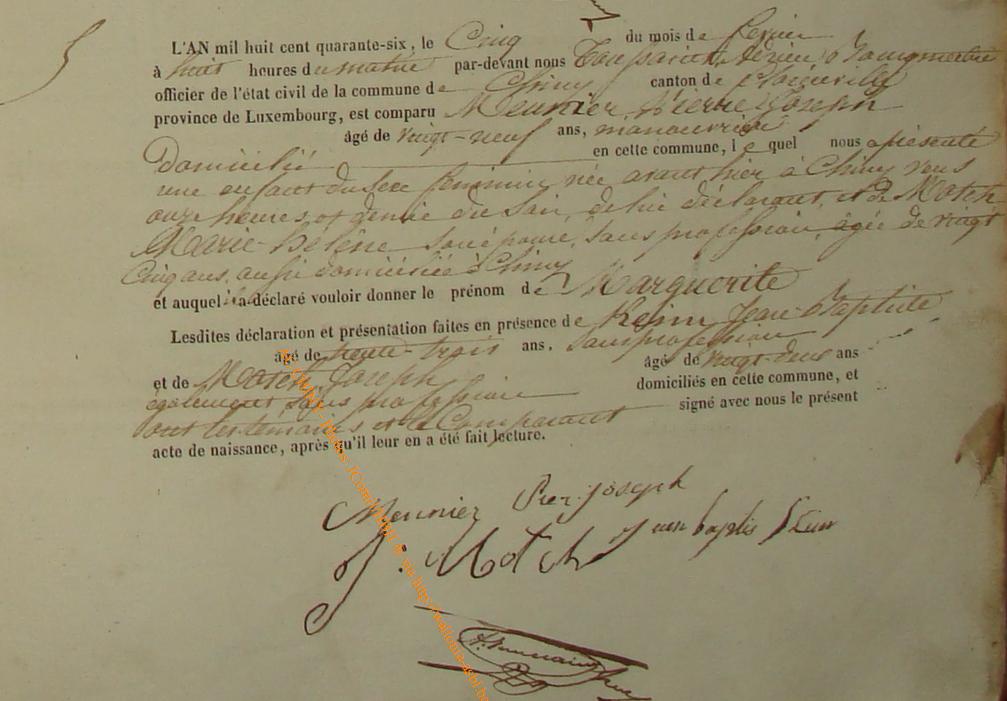 5
L'AN mil huit cent quarante-six, le Cinq du mois de fevrier
à huit heures du matin par-devant nous Toussaint,
officier de l'état civil de la commune de Chiny canton de
province de Luxembourg, est comparu Meunier, Pierre Joseph
âgé de vingt-neuf ans, manouvrier
Domicilié en cette commune, le quel nous a présenté
une enfant du sexe feminin, née avant hier à Chiny vers
onze heures et demie du Soir, de lui déclarant, et de Motch
Marie-hélène son épouse, sans profession, âgée de vingt
Cinq ans, aussi domiciliée à Chiny
et auquel il a déclaré vouloir donner le prénom de Marguerite
Lesdites déclaration et présentation faites en présence de Jean-Baptiste
âgé de trente-trois ans, sans profession
et de Motch Joseph âgé de vingt-deux ans
également sans profession domiciliés en cette commune, et
ont les témoins et le Comparant signé avec nous le présent
acte de naissance, après qu'il leur en a été fait lecture.
Meunier Pier joseph
J: Motch Jean baptis